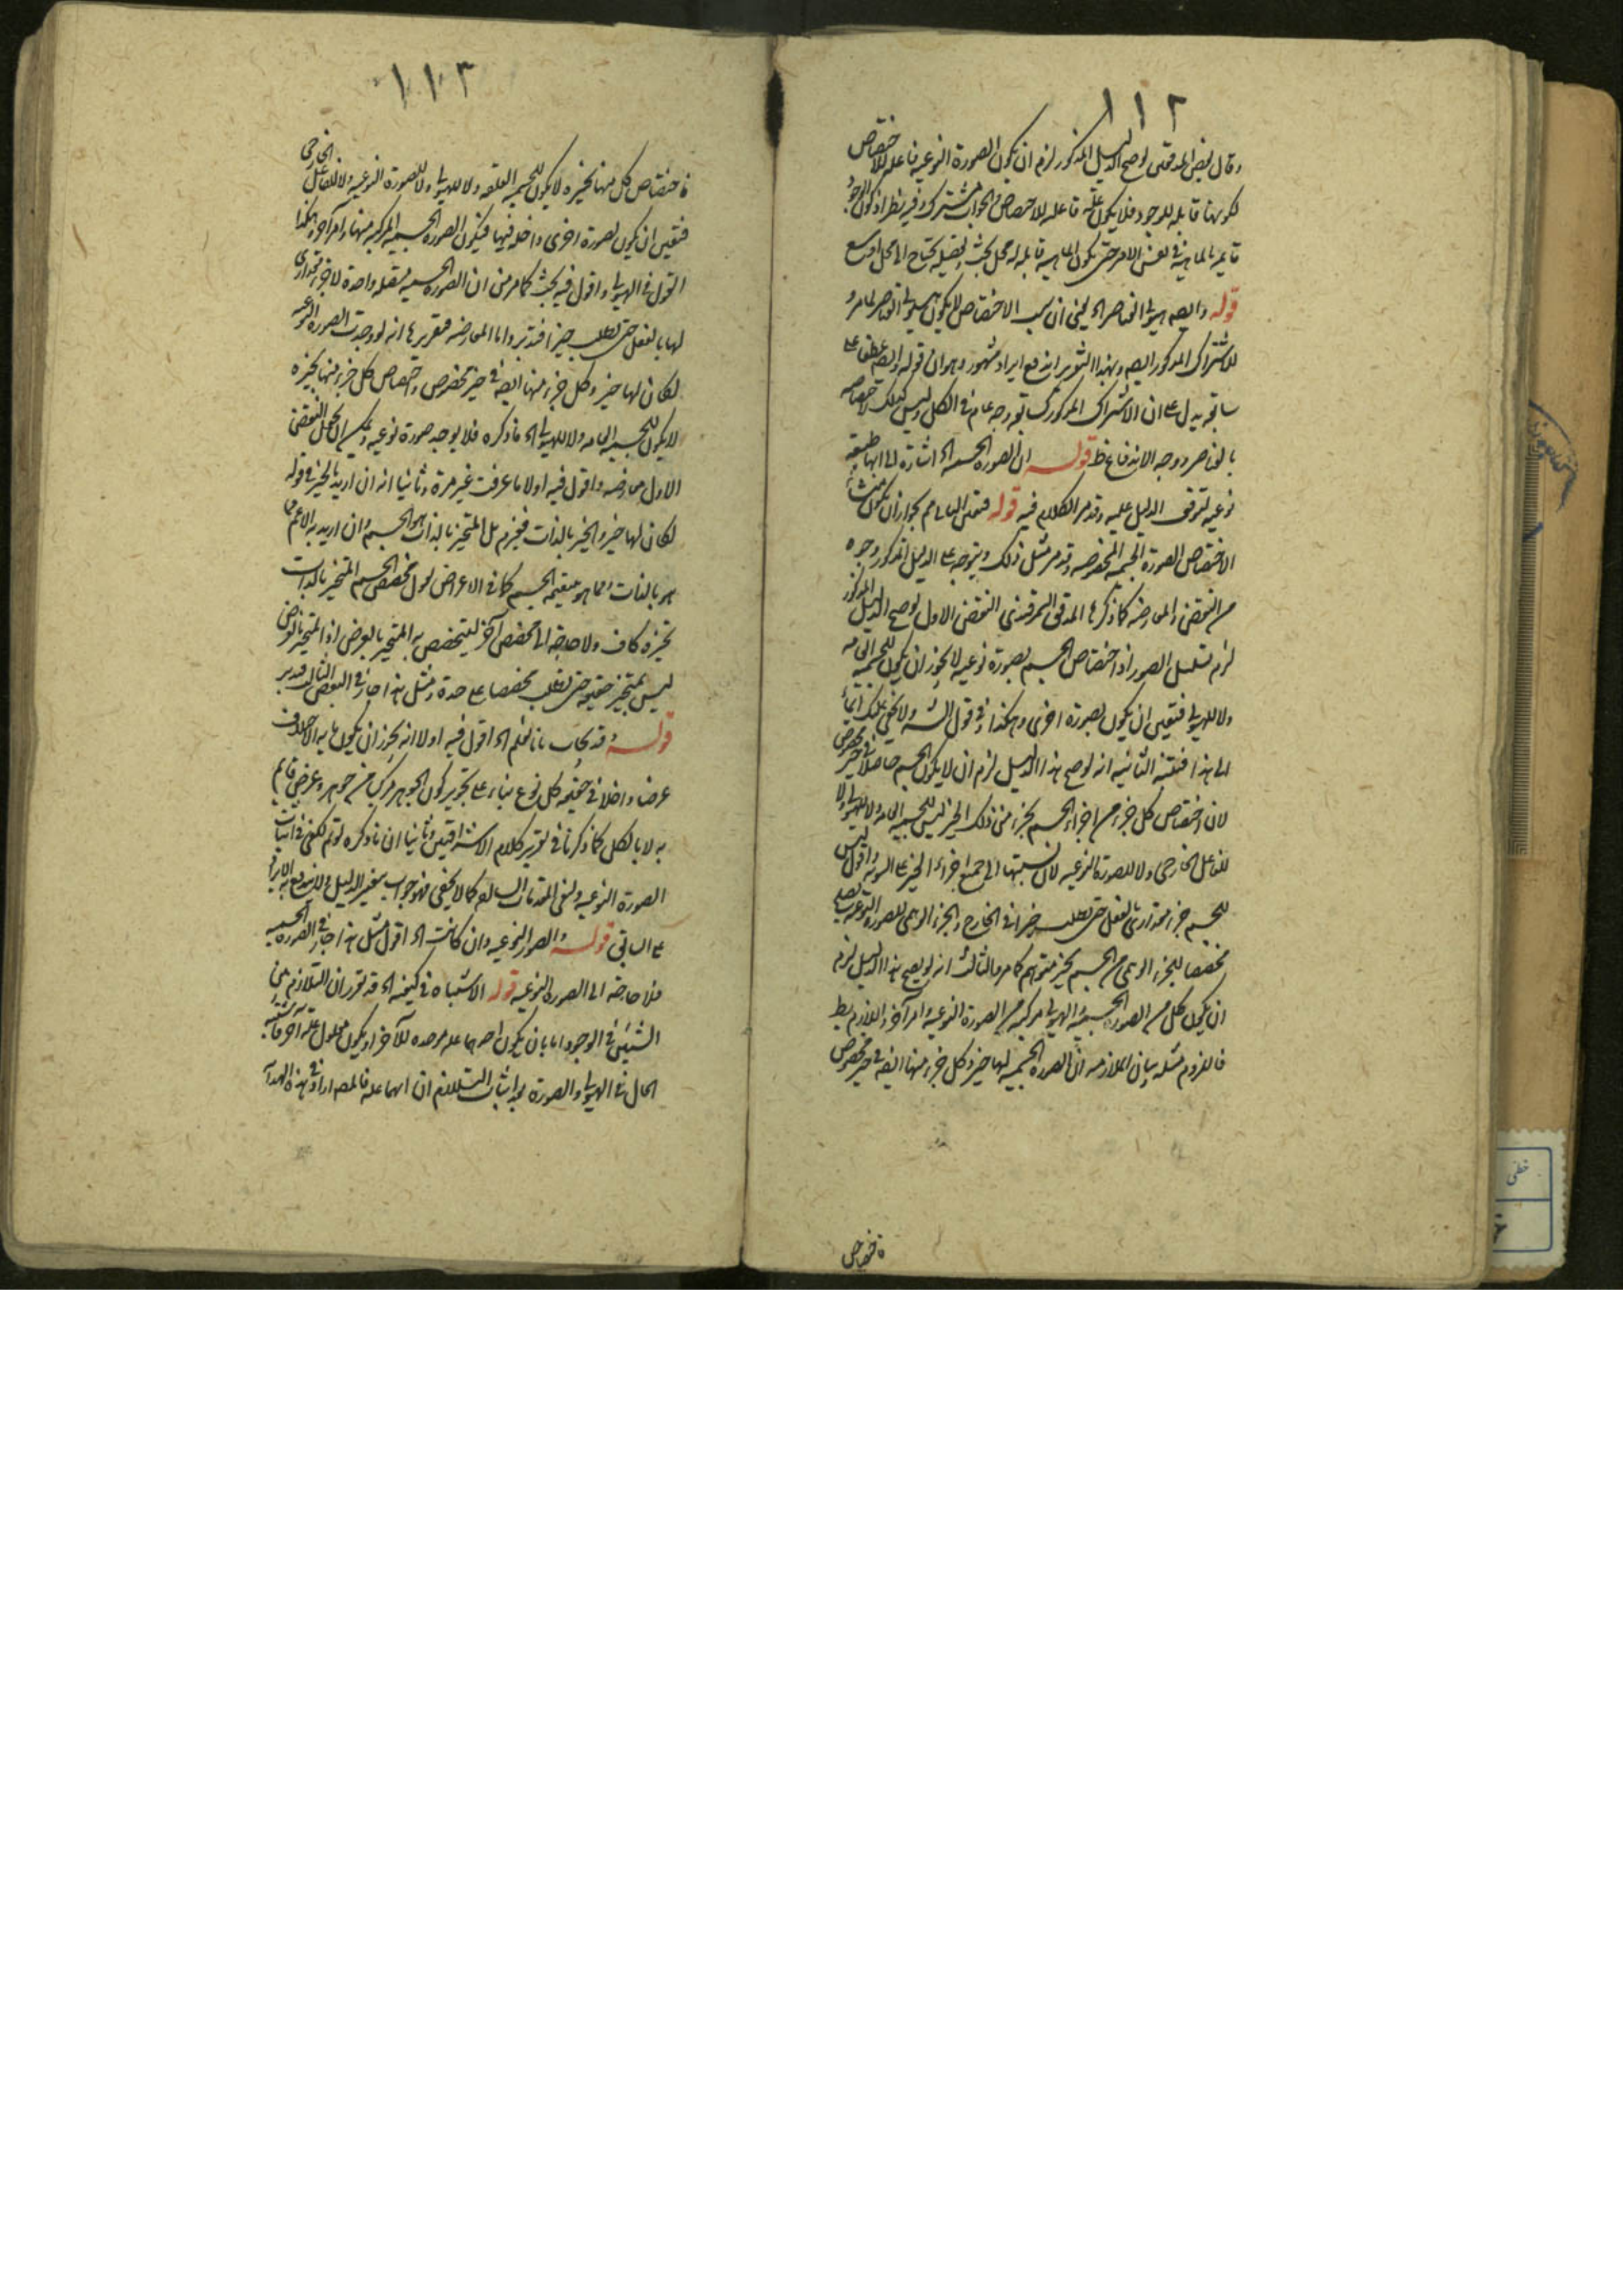 ١١٢
وقال بعض المدققين لو صح الدليل المذكور لزم ان يكون الصورة النوعية فاعله للاختصاص
لكونها قابله للوجود فلا يكون علة فاعله للاختصاص والجواب مشترك وفيه نظر اذ كون الوجود
قايم بالماهية في نفس الامر حتى يكون الماهية قابله له محل بحث وتفصيله يحتاج الى محل اوسع
قوله وايضه هيولى العناصر اه يعنى ان سبب الاختصاص لا يكون هيولى العناصر لما مر و
للاشتراك المذكور ايضه وبهذا التقرير اندفع ايراد مشهور وهو ان قوله وايضه عطف على
سابقه يدل على ان الاشتراك المذكور في سابقه وجه عام في الكل وليس كذلك لاختصاصه
بالعناصر ووجه الاندفاع ظ قوله ان الصورة الجسميه اه اشارة الى انها طبيعة
نوعية لتوقف الدليل عليه وقد مر الكلام فيه قوله فتعين الثالث مم لجواز ان يكون منشأ
الاختصاص الصورة الجسميه المخصوصه وقد مر مثل ذلك ويتوجه على الدليل المذكور وجوه
من النقض والمعارضه كما ذكرها المدقق السمرقندى النقض الاول لو صح الدليل المذكور
لزم تسلسل الصور اذ اختصاص الجسم بصورة نوعيه لا يجوز ان يكون للجسميه العامه
ولا للهيولى فتعين ان يكون بصورة اخرى وهكذا وفى قول الش ولا يخفى عليك ايماء
الى هذا فتفتنه الثانيه انه لو صح هذا الدليل لزم ان لا يكون الجسم حاصلا في حيز مخصوص
لان اختصاص كل جزء من اجزاء الجسم بجزء من ذلك الحيز ليس للجسميه العامه ولا للهيولى ولا
للفاعل الخارجى ولا للصورة النوعيه لان نسبتها الى جميع اجزاء الحيز على السويه واقول ليس
للجسم جزء مقدارى بالفعل حتى يطلب حيزا في الخارج والجزء الوهمى للصورة النوعيه يصلح
مخصصا للجزء الوهمى من الجسم بحيز متوهم كما مر والثالث انه لو صح هذا الدليل لزم
ان يكون كل من الصورة الجسميه والهيولى مركبه من الصورة النوعيه وامر آخر واللازم بط
فالملزوم مثله بيان الملازمه ان الصورة الجسميه لها حيز وكل جزء منها ايضه في حيز مخصوص
فاختصاص
١١٣
فاختصاص كل منها بحيزه لا يكون للجسميه المطلقه ولا للهيولى ولا للصورة النوعيه ولا للفاعل الخارجى
فتعين ان يكون لصورة اخرى داخله فيها فيكون الصورة الجسميه مركبه منها وامر آخر وهكذا
القول في الهيولى واقول فيه بحث كما مر من ان الصورة الجسميه متصله واحدة لا جزء مقدارى
لها بالفعل حتى يطلب حيزا فتدبر واما المعارضه فتقريرها انه لو وجدت الصورة النوعيه
لكان لها حيز وكل جزء منها ايضه في حيز مخصوص واختصاص كل جزء منها بحيزه
لا يكون للجسميه العامه ولا للهيولى اه ما ذكره فلا يوجد صورة نوعيه ويمكن ان يجعل النقض
الاول معارضه واقول فيه اولا ما عرفت غير مرة وثانيا انه ان اريد بالحيز في قوله
لكان لها حيز والحيز بالذات فيلزم بل المتحيز بالذات هو الجسم وان اريد به الاعم مما
هو بالذات ومما هو بتبعية الجسم كما في الاعراض نقول مخصص الجسم المتحيز بالذات
بحيزه كاف ولا حاجة الى مخصص آخر ليتخصص به المتحيز بالعرض اذ المتحيز بالعرض
ليس بمتحيز حقيقه حتى يطلب مخصصا على حدة ومثل هذا جار في النقض الثالث فتدبر
قوله وقد يجاب بانا نعلم اه اقول فيه اولا انه يجوز ان يكون ما به الاختلاف
عرضا داخلا في حقيقة كل نوع بناء على تجويز كون الجوهر مركبا من جوهر وعرض قايم
به لا بالكل كما ذكرنا في تقرير كلام الاشراقيين وثانيا ان ما ذكره لو تم لكفى في اثبات
الصورة النوعيه ولغى المقدمات السابقه كما لا يخفى فهو جواب بتغيير الدليل ولا يندفع به الايراد
على السابق قوله والصور النوعيه وان كانت اه اقول مثل هذا جار في الصورة الجسميه
فلا حاجة الى الصورة النوعيه قوله الاشتباه في كيفيه اه قد تقرر ان التلازم بين
الشيئين في الوجود اما بان يكون احدهما علة موجده للآخر او يكون معلولى علة آخر فاشتبه
الحال في الهيولى والصورة بعد اثبات التلازم ان ايهما علة فالمصه اراد في هذه الهداية
خطى